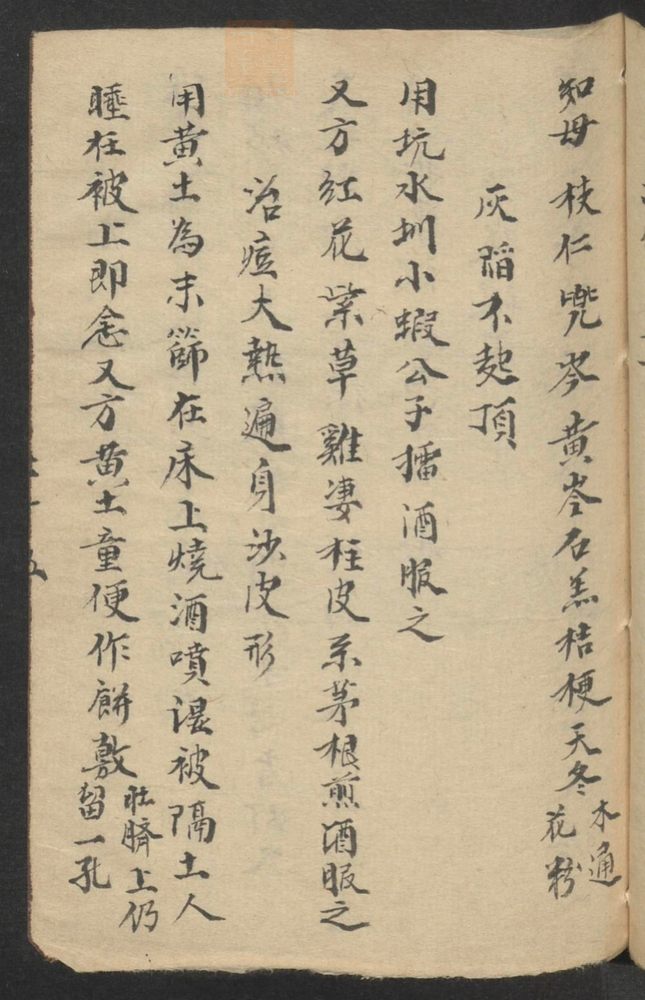 知母枝仁兜岑黄岑石羔桔梗天冬木通花粉
灰陷不起頂
用坑水圳小蝦公子擂酒服之
又方紅花紫草雞婆柱皮系茅根煎酒服之
治痘大熱遍身沙皮形
用黄土為末篩在床上燒酒噴湿被隔土人
睡在被上即念又方黄土童便作餅敷肚臍上仍留一孔